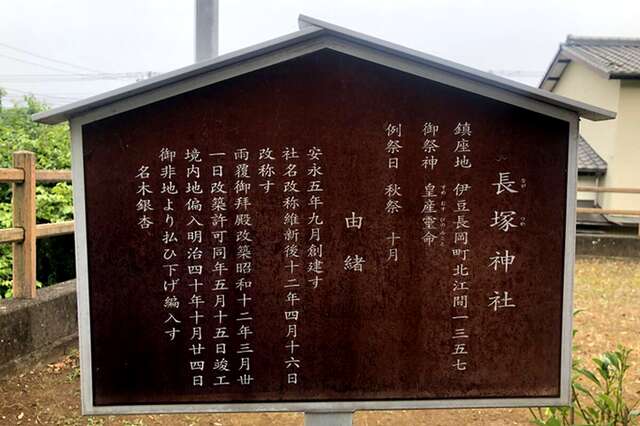 長塚神社
鎮座地 伊豆長岡町北江間一三五七
御祭神 皇産霊命
例祭日 秋祭 十月
由緒
安永五年九月創建す
社名改称維新後十二年四月十六日
改称す
雨覆御拝殿改築昭和十二年三月丗
一日改築許可同年五月十五日竣工
境内地偏入明治四十年十月廿四日
御非地より払ひ下げ編入す
名木銀杏